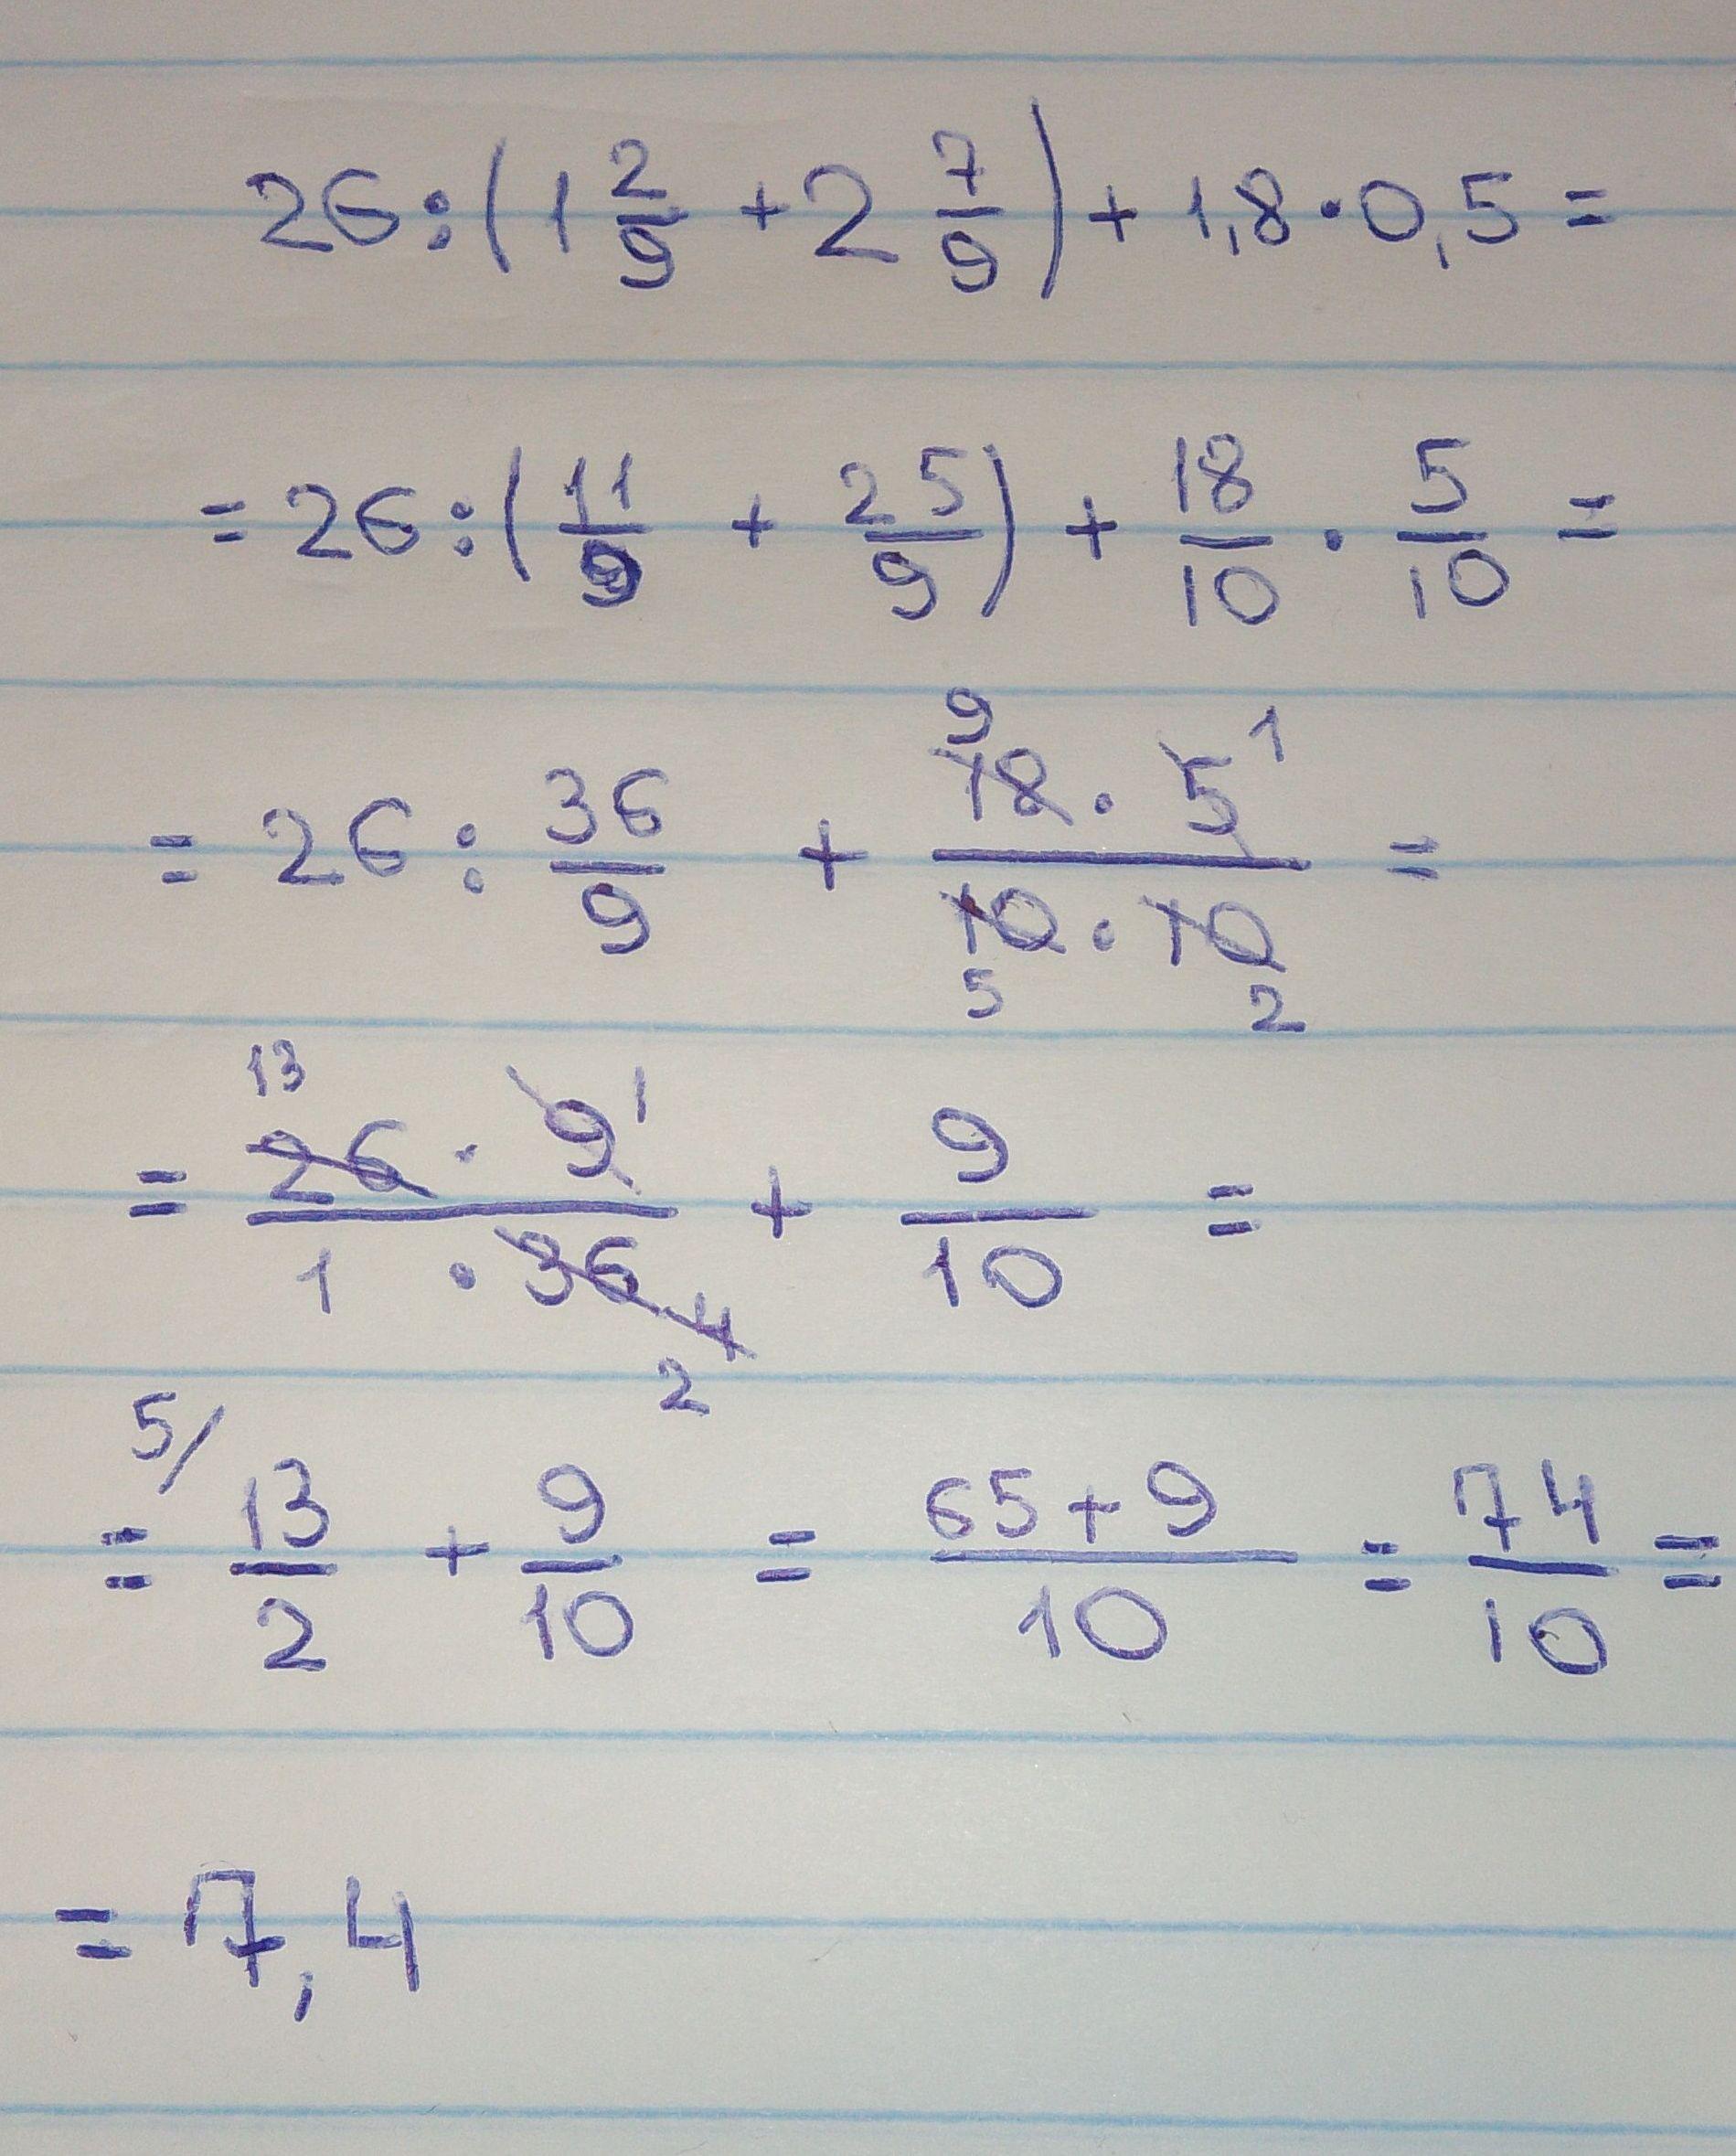 26:(1 2/9 + 2 7/9) + 1,8·0,5 =
= 26:(11/9 + 25/9) + 18/10 · 5/10 =
9 1
= 26 : 36/9 + (18 · 5)/(10 · 10) =
5 2
13 1
= (26 · 9)/(1 · 36) + 9/10 =
4
2
5/
= 13/2 + 9/10 = (65+9)/10 = 74/10 =
= 7,4